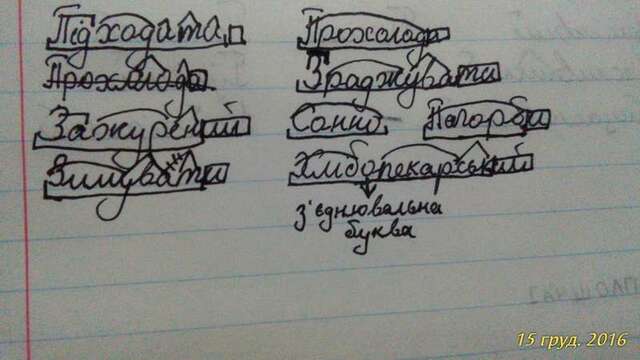 Підходата Прохолода
Прохолода Зраджувати
Зажурений Сонно Погорби
Зимувати Хлібопекарський
з'єднювальна
буква
15 груд. 2016